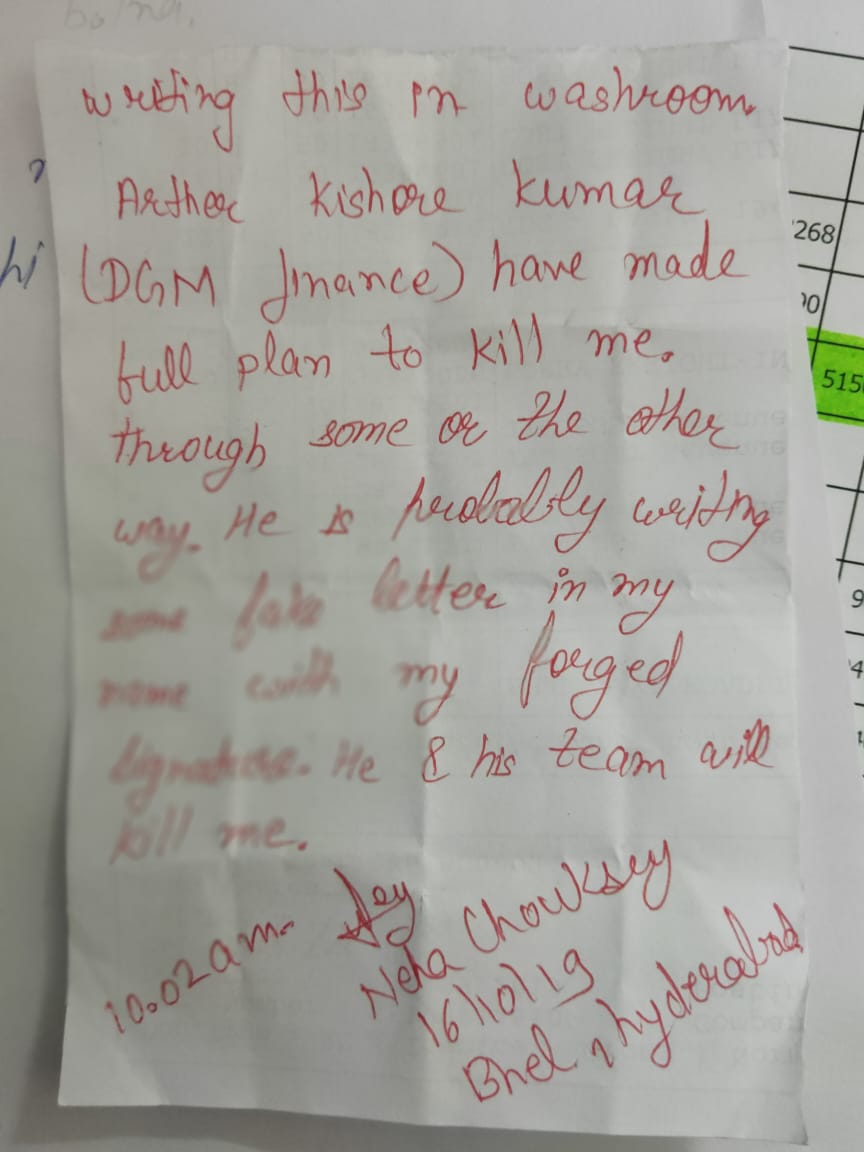 writing this in washroom.
Arther Kishore Kumar
(DGM finance) have made
full plan to kill me.
through some or the other
way. He is probably writing
some fake letter in my
name with my forged
signature. He & his team will
kill me.
10.02 am.
Neha Chouksey
16/10/19
Bhel, hyderabad
268
00
515
9
4